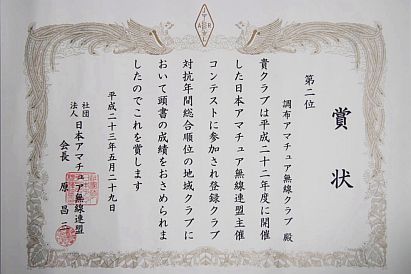 賞状
第二位
調布アマチュア無線クラブ 殿
貴クラブは平成二十二年度に開催
した日本アマチュア無線連盟主催
コンテストに参加され登録クラブ
対抗年間総合順位の地域クラブに
おいて頭書の成績をおさめられま
したのでこれを賞します
平成二十三年五月二十九日
社団法人 日本アマチュア無線連盟
会長 原 昌三